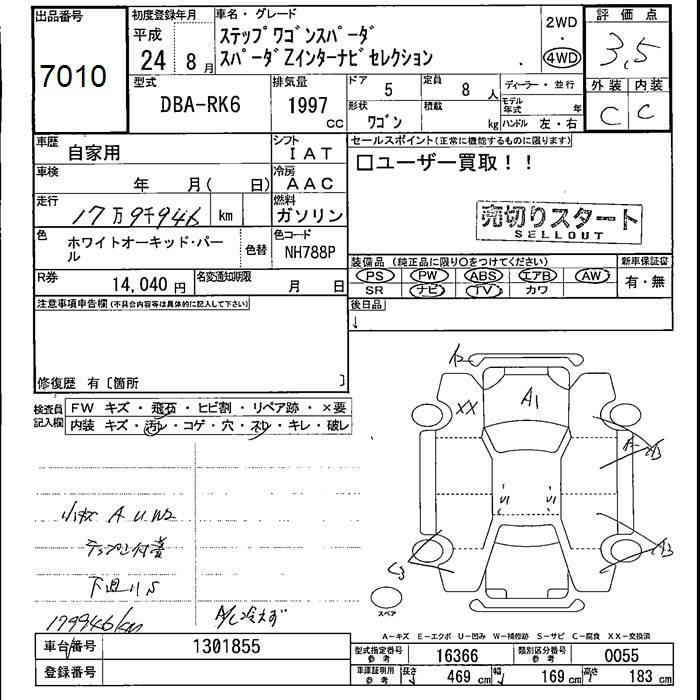 出品番号
7010
初度登録年月
平成
24年8月
車名・グレード
ステップワゴンスパーダ
スパーダZインターナビセレクション
2WD
・
4WD
評価点
3.5
外装 内装
C C
型式
DBA-RK6
排気量
1997
CC
ドア 5
定員 8人
形状 ワゴン
積載 kg
ディーラー・並行
モデル年式 年
ハンドル 左・右
車歴 自家用
シフト IAT
車検 年 月( 日)
冷房 AAC
走行 17万9千946 km
燃料 ガソリン
色 ホワイトオーキッド・パール
色替
色コード NH788P
R券 14,040円
名変通知期限 月 日
セールスポイント(正常に機能するものに限ります)
□ユーザー買取!!
売切りスタート
SELLOUT
装備品 (純正品に限り〇をつけてください)
PS PW ABS エアB AW
SR ナビ TV カワ
新車保証書
有・無
後日品
↓
注意事項申告欄(不具合内容等は具体的に記入して下さい)
修復歴 有〔箇所 〕
検査員記入欄
FW キズ・飛石・ヒビ割・リペア跡・×要
内装 キズ・汚レ・コゲ・穴・スレ・キレ・破レ
小キズ A U W2
下廻りS
179946km
A/C冷えず
A1
XX
A
U1 U1
スペア
A-キズ E-エクボ U-凹み W-補修跡 S-サビ C-腐食 XX-交換済
車台番号 1301855
登録番号
型式指定番号 参考 16366
類別区分番号 参考 0055
車庫証明用 参考 長さ 469 cm 幅 169 cm 高さ 183 cm